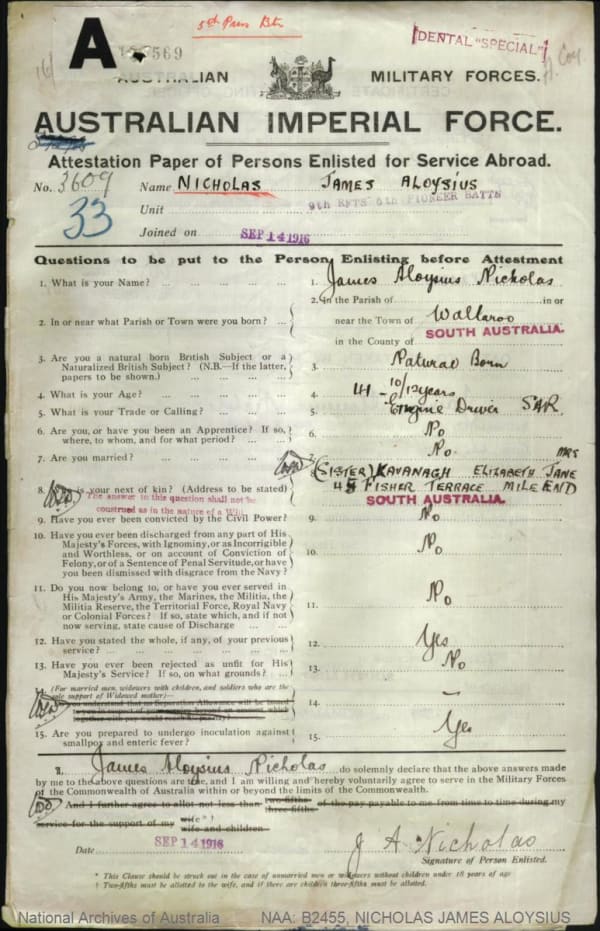 5th Pion Btn
DENTAL "SPECIAL"
A
569
AUSTRALIAN MILITARY FORCES.
AUSTRALIAN IMPERIAL FORCE.
Attestation Paper of Persons Enlisted for Service Abroad.
No. 3609 Name NICHOLAS JAMES ALOYSIUS
33
Unit 9th RFTS 5th PIONEER BATTN
Joined on SEP 14 1916
Questions to be put to the Person Enlisting before Attestation
1. What is your Name? 1. James Aloysius Nicholas
2. In or near what Parish or Town were you born? 2. In the Parish of in or
near the Town of Wallaroo
in the County of SOUTH AUSTRALIA.
3. Are you a natural born British Subject or a
Naturalized British Subject? (N.B.—If the latter,
papers to be shown.) 3. Natural Born
4. What is your Age? 4. 41 - 10/12 years
5. What is your Trade or Calling? 5. Engine Driver SAR.
6. Are you, or have you been an Apprentice? If so,
where, to whom, and for what period? 6. No
7. Are you married? 7. No
8. is your next of kin? (Address to be stated) (SISTER) KAVANAGH ELIZABETH JANE MRS
The answer to this question shall not be
construed as in the nature of a Will
FISHER TERRACE MILE END
SOUTH AUSTRALIA.
9. Have you ever been convicted by the Civil Power? 9. No
10. Have you ever been discharged from any part of His
Majesty's Forces, with Ignominy, or as Incorrigible
and Worthless, or on account of Conviction of
Felony, or of a Sentence of Penal Servitude, or have
you been dismissed with disgrace from the Navy? 10. No
11. Do you now belong to, or have you ever served in
His Majesty's Army, the Marines, the Militia, the
Militia Reserve, the Territorial Force, Royal Navy
or Colonial Forces? If so, state which, and if not
now serving, state cause of Discharge 11. No
12. Have you stated the whole, if any, of your previous
service? 12. Yes
13. Have you ever been rejected as unfit for His
Majesty's Service? If so, on what grounds? 13. No
(For married men, widowers with children, and soldiers who are the
sole support of Widowed mother)—
14. —
15. Are you prepared to undergo inoculation against
smallpox and enteric fever? 15. Yes
I, James Aloysius Nicholas do solemnly declare that the above answers made
by me to the above questions are true, and I am willing and hereby voluntarily agree to serve in the Military Forces
of the Commonwealth of Australia within or beyond the limits of the Commonwealth.
And I further agree to allot not less than two-fifths three-fifths of the pay payable to me from time to time during my
service for the support of my wife*† wife and children
Date SEP 14 1916 J A Nicholas
Signature of Person Enlisted.
* This Clause should be struck out in the case of unmarried men or widowers without children under 18 years of age
† Two-fifths must be allotted to the wife, and if there are children three-fifths must be allotted.
National Archives of Australia NAA: B2455, NICHOLAS JAMES ALOYSIUS